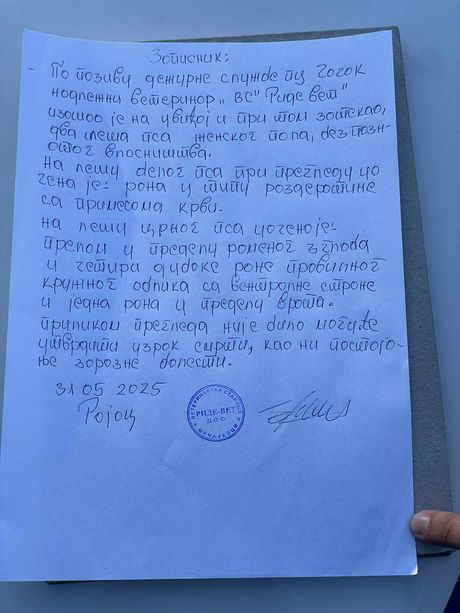 Записник:
- По позиву дежурне службе ПЦ Чачак
надлежни ветеринар „ВС" Риде вет"
изашао је на увиђај и при том затекао,
два леша пса женског пола, без позн-
атог власништва.
На лешу белог пса при прегледу уо
чена је: рана у типу раздеротине
са примесама крви.
на лешу црног пса уочено је:
прелом у пределу раменог зглоба
и четири дубоке ране правилног
кружног облика са вентралне стране
и једна рана у пределу врата.
приликом прегледа није било могуће
утврдити узрок смрти, као ни постоја-
ње заразне болести.
31 05 2025
Рајац
ВЕТЕРИНАРСКА СТАНИЦА
РИДЕ-ВЕТ
ДОО